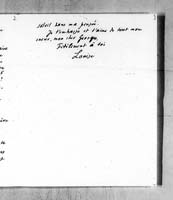 2
soleil dans ma pensée.
Je t'embrasse et t'aime de tout mon
coeur, mon cher George.
Fidèlement à toi
Louise